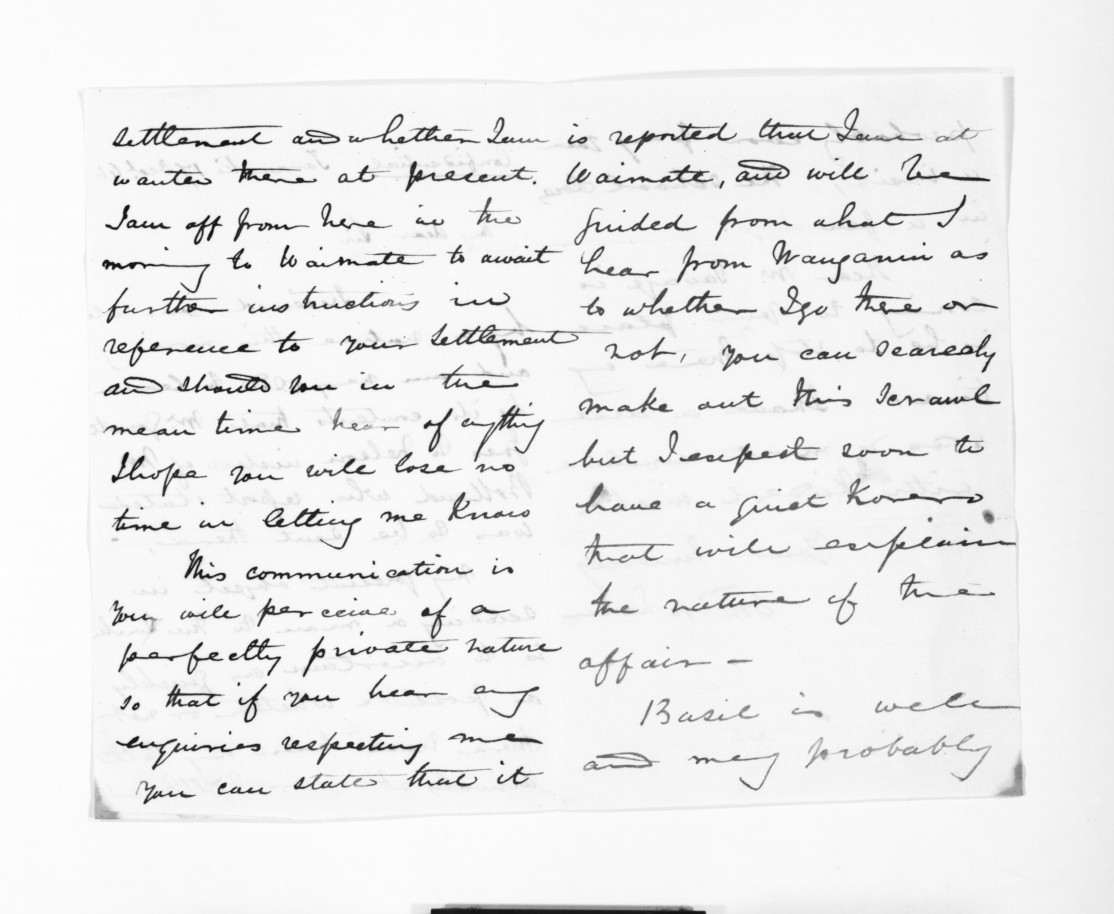 settlement and whether I am
wanted there at present.
I am off from here in the
morning to Waimate to await
further instructions in
reference to your settlement
and should you in the
mean time hear of anything
I hope you will lose no
time in letting me know
This communication is
you will perceive of a
perfectly private nature
so that if you hear any
enquiries respecting me
you can state that it
is reported that I am at
Waimate, and will be
guided from what I
hear from Wanganui as
to whether I go there or
not, you can scarcely
make out this scrawl
but I expect soon to
have a quiet Korero
that will explain
the nature of the
affair –
Basil is well
and may probably